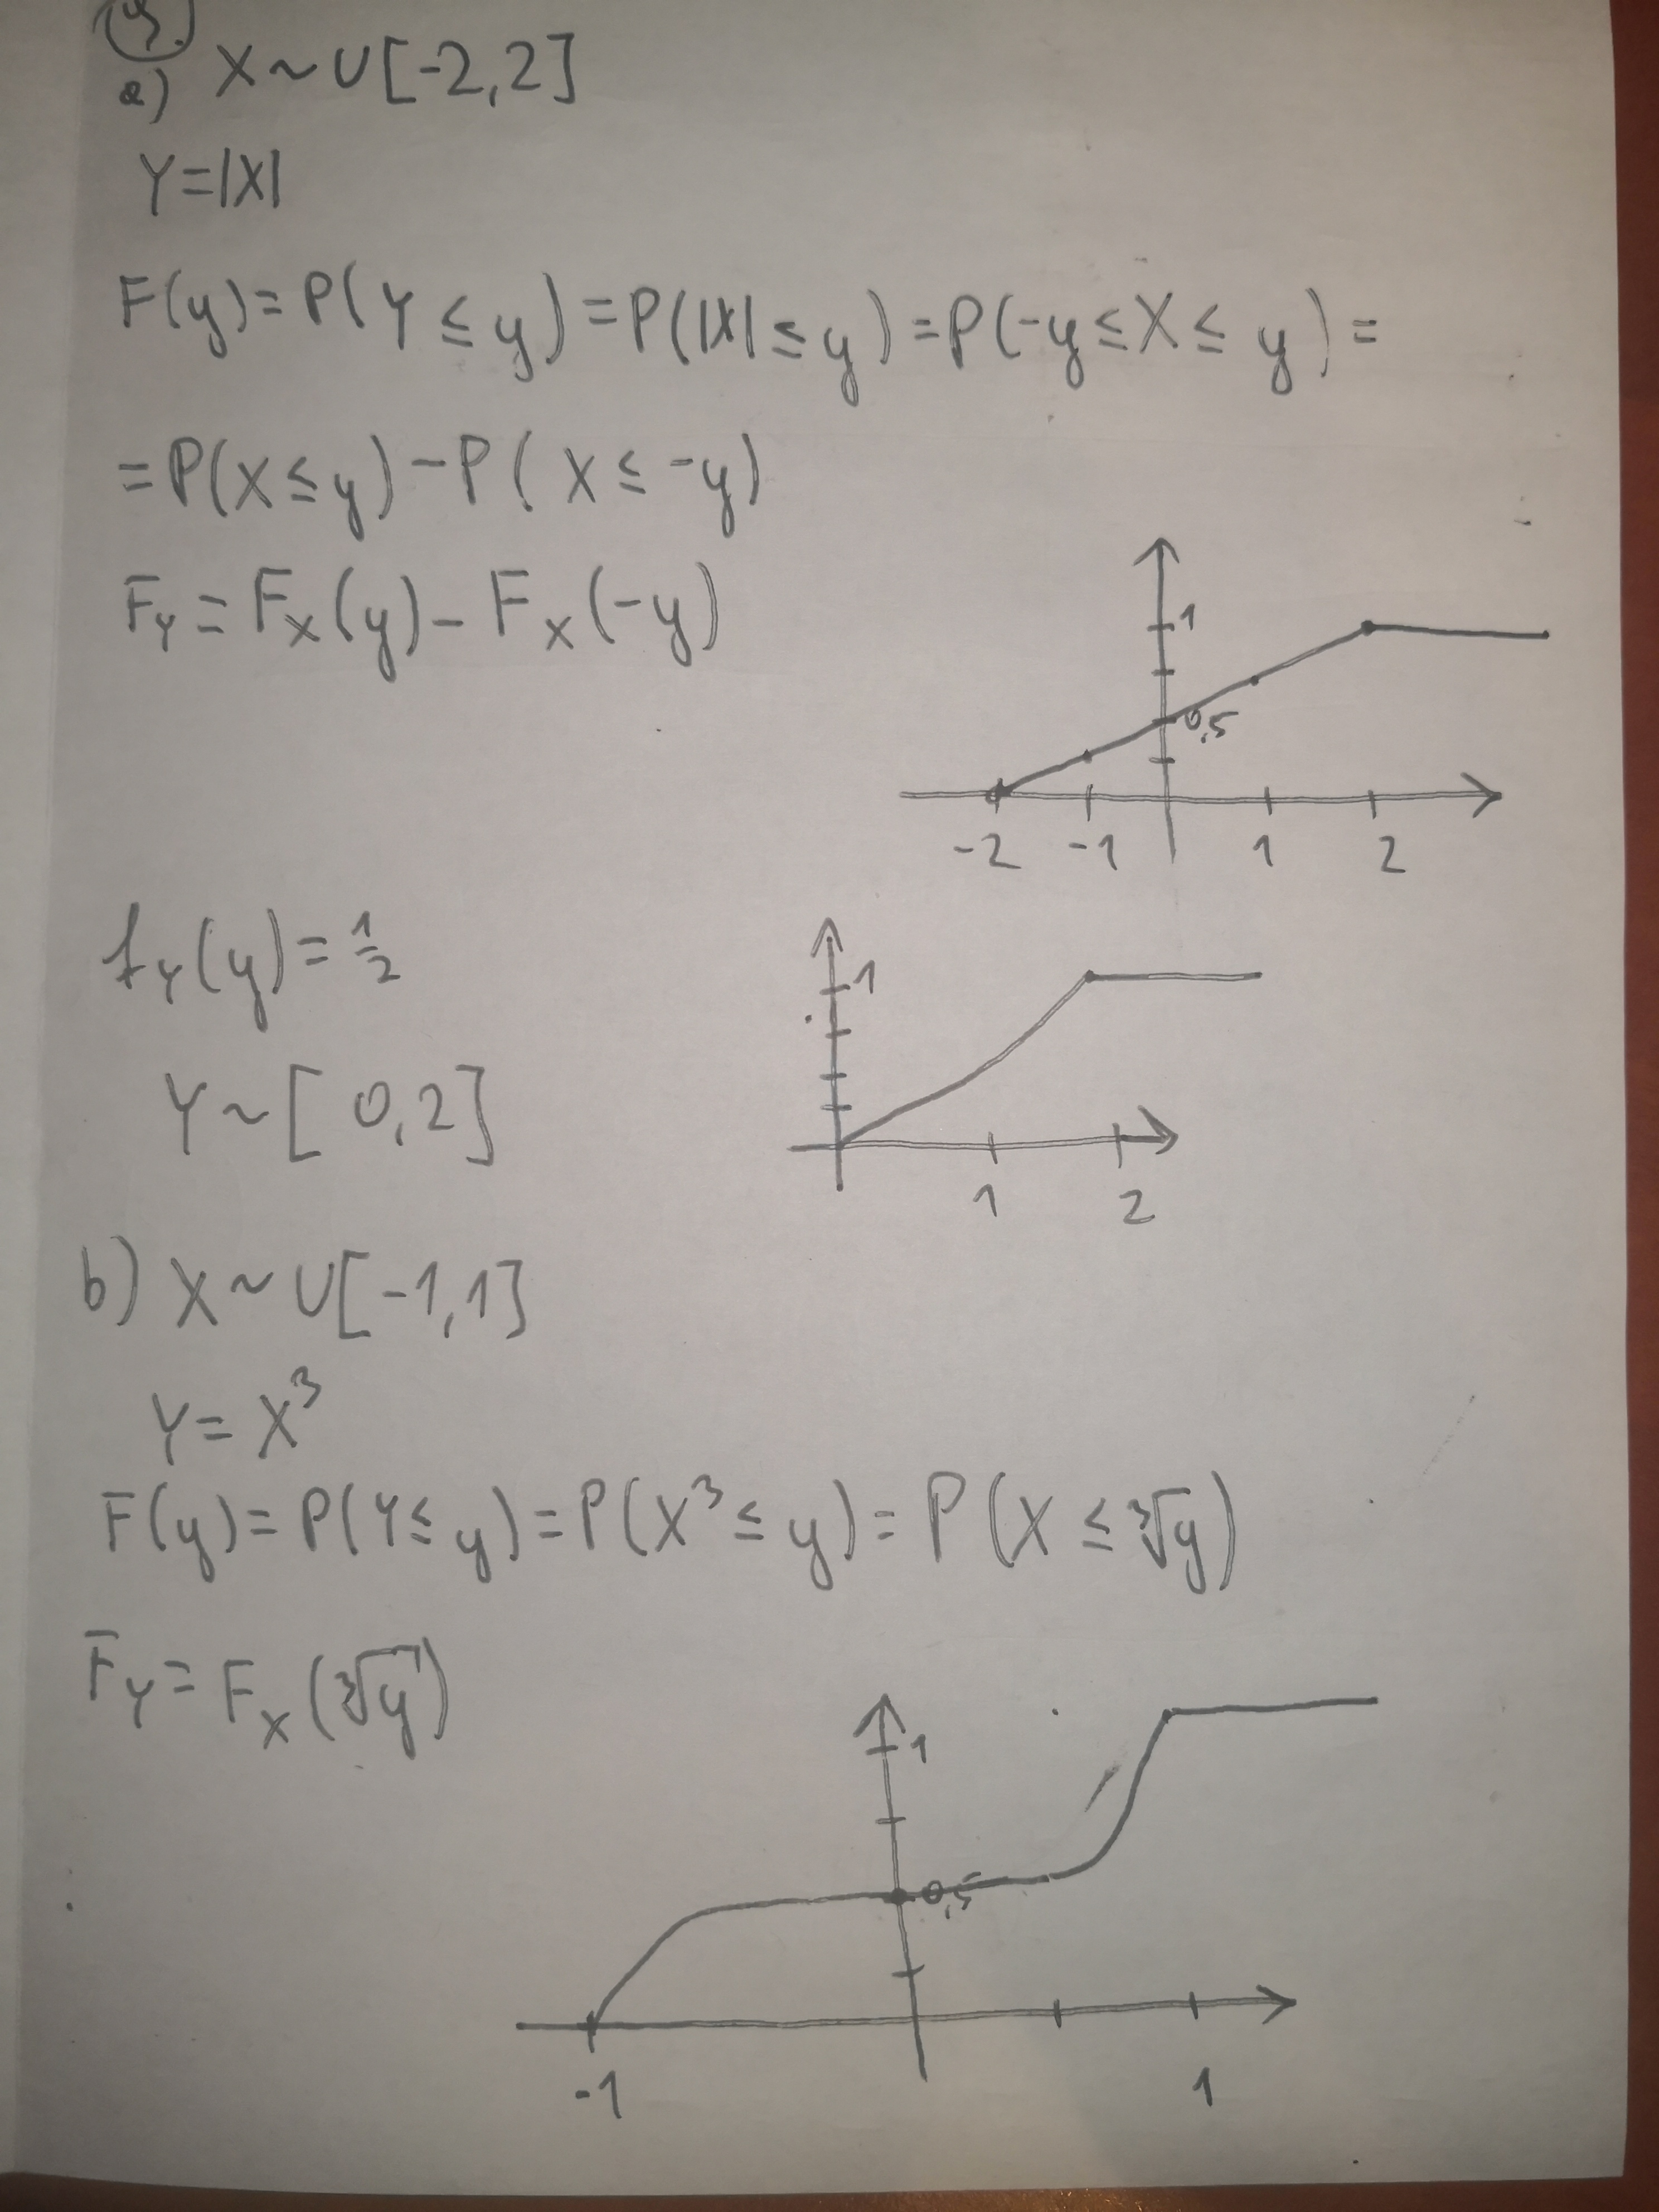 a) X ~ U[-2,2]
Y=|X|
F(y)= P(Y ≤ y) = P(|X| ≤ y) = P(-y ≤ X ≤ y) =
= P(X ≤ y) - P( X ≤ -y)
F_Y = F_X(y) - F_X(-y)
1
0,5
-2 -1 1 2
f_Y(y) = 1/2
1
Y ~ [ 0,2]
1 2
b) X ~ U[-1,1]
Y = X³
F(y) = P(Y ≤ y) = P(X³ ≤ y) = P (X ≤ ∛y)
F_Y = F_X (∛y)
1
0,5
-1 1